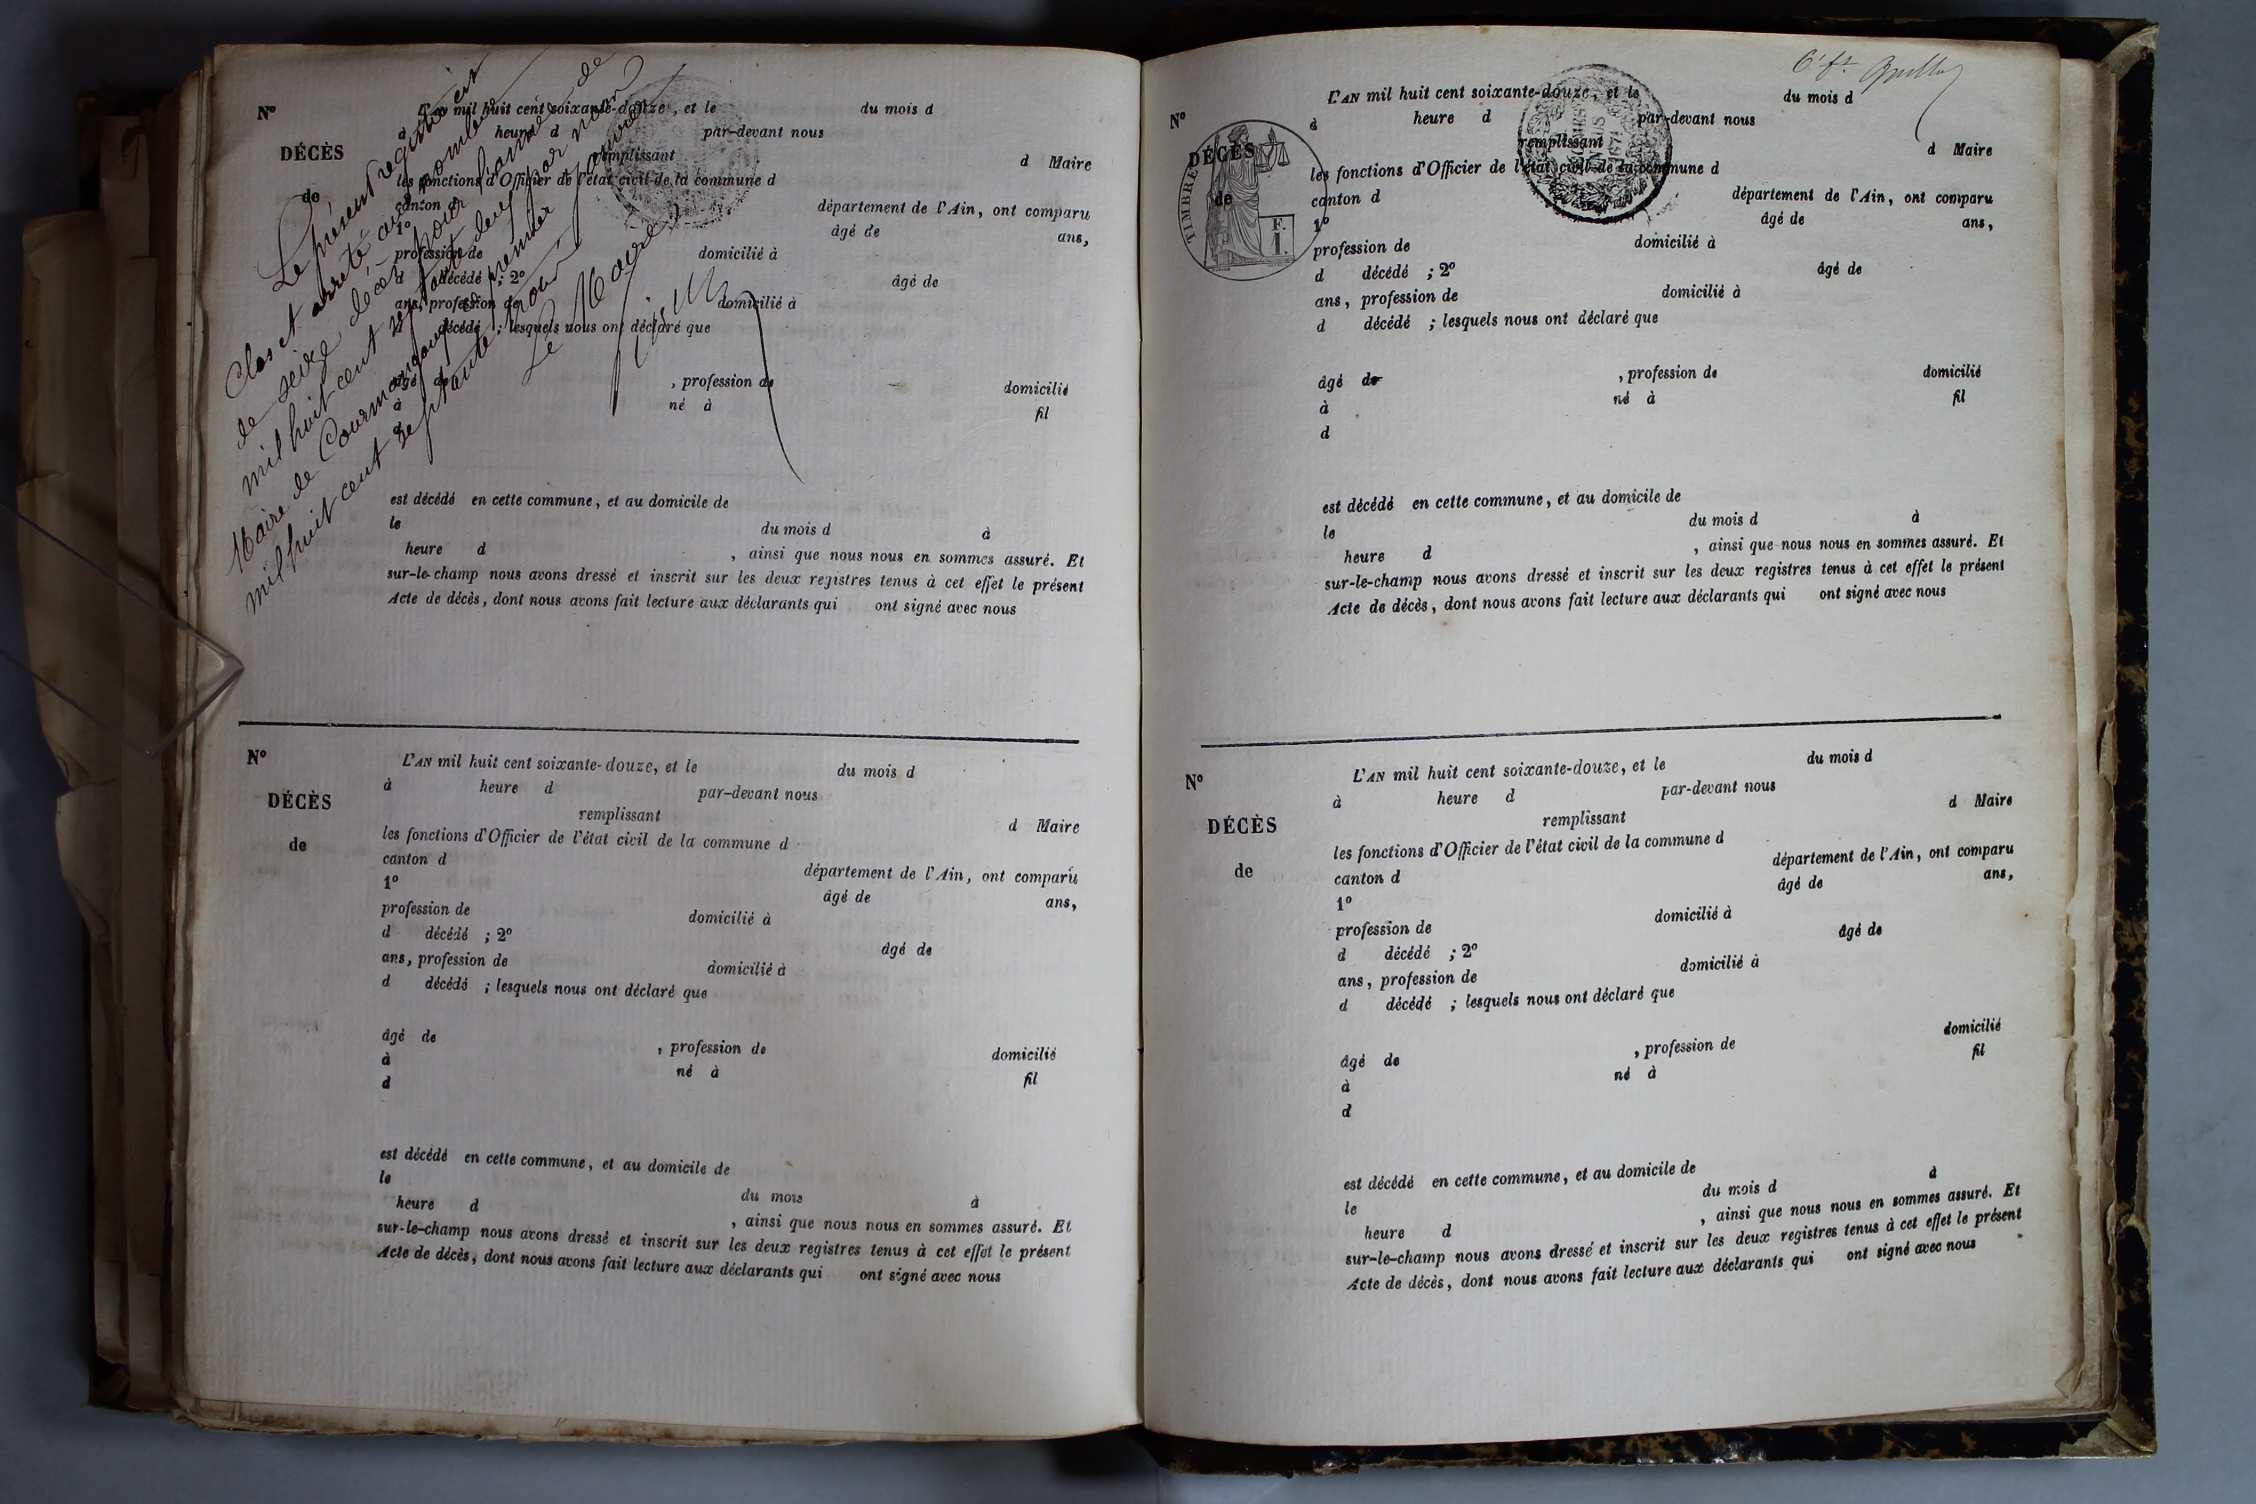 Le présent registre a été
Clos et arrêté au nombre
de seize décès pour l'année
mil huit cent septante deux par nous
Maire de Courmangoux le premier janvier
mil huit cent septante trois
Le Maire
N°
DÉCÈS
de
L'AN mil huit cent soixante-douze, et le du mois d
à heure d par-devant nous
remplissant d Maire
les fonctions d'Officier de l'état civil de la commune d
canton d département de l'Ain, ont comparu
1° âgé de ans,
profession de domicilié à
d décédé ; 2° âgé de
ans, profession de domicilié à
d décédé ; lesquels nous ont déclaré que
âgé de , profession de domicilié
à né à fil
d
est décédé en cette commune, et au domicile de
le du mois d à
heure d , ainsi que nous nous en sommes assuré. Et
sur-le-champ nous avons dressé et inscrit sur les deux registres tenus à cet effet le présent
Acte de décès, dont nous avons fait lecture aux déclarants qui ont signé avec nous
N°
DÉCÈS
de
L'AN mil huit cent soixante-douze, et le du mois d
à heure d par-devant nous
remplissant d Maire
les fonctions d'Officier de l'état civil de la commune d
canton d département de l'Ain, ont comparu
1° âgé de ans,
profession de domicilié à
d décédé ; 2° âgé de
ans, profession de domicilié à
d décédé ; lesquels nous ont déclaré que
âgé de , profession de domicilié
à né à fil
d
est décédé en cette commune, et au domicile de
le du mois à
heure d , ainsi que nous nous en sommes assuré. Et
sur-le-champ nous avons dressé et inscrit sur les deux registres tenus à cet effet le présent
Acte de décès, dont nous avons fait lecture aux déclarants qui ont signé avec nous
6e ft.
N°
DÉCÈS
de
TIMBRE
F.
1.
L'AN mil huit cent soixante-douze, et le du mois d
à heure d par-devant nous
remplissant d Maire
les fonctions d'Officier de l'état civil de la commune d
canton d département de l'Ain, ont comparu
1° âgé de ans,
profession de domicilié à
d décédé ; 2° âgé de
ans, profession de domicilié à
d décédé ; lesquels nous ont déclaré que
âgé de , profession de domicilié
à né à fil
d
est décédé en cette commune, et au domicile de
le du mois d à
heure d , ainsi que nous nous en sommes assuré. Et
sur-le-champ nous avons dressé et inscrit sur les deux registres tenus à cet effet le présent
Acte de décès, dont nous avons fait lecture aux déclarants qui ont signé avec nous
N°
DÉCÈS
de
L'AN mil huit cent soixante-douze, et le du mois d
à heure d par-devant nous
remplissant d Maire
les fonctions d'Officier de l'état civil de la commune d
canton d département de l'Ain, ont comparu
1° âgé de ans,
profession de domicilié à
d décédé ; 2° âgé de
ans, profession de domicilié à
d décédé ; lesquels nous ont déclaré que
âgé de , profession de domicilié
à né à fil
d
est décédé en cette commune, et au domicile de
le du mois d à
heure d , ainsi que nous nous en sommes assuré. Et
sur-le-champ nous avons dressé et inscrit sur les deux registres tenus à cet effet le présent
Acte de décès, dont nous avons fait lecture aux déclarants qui ont signé avec nous